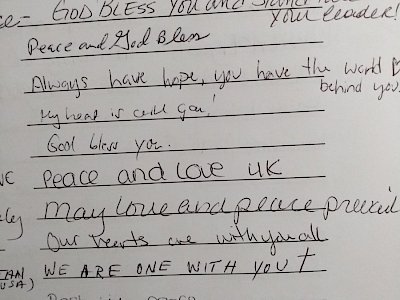 ce- GOD BLESS YOU and stand
your leader!
Peace and God Bless
Always have hope, you have the world
behind you
My heart is with you!
God bless you.
Peace and Love UK
May love and peace prevail
Our hearts are with you all
WE ARE ONE WITH YOU †
USA)